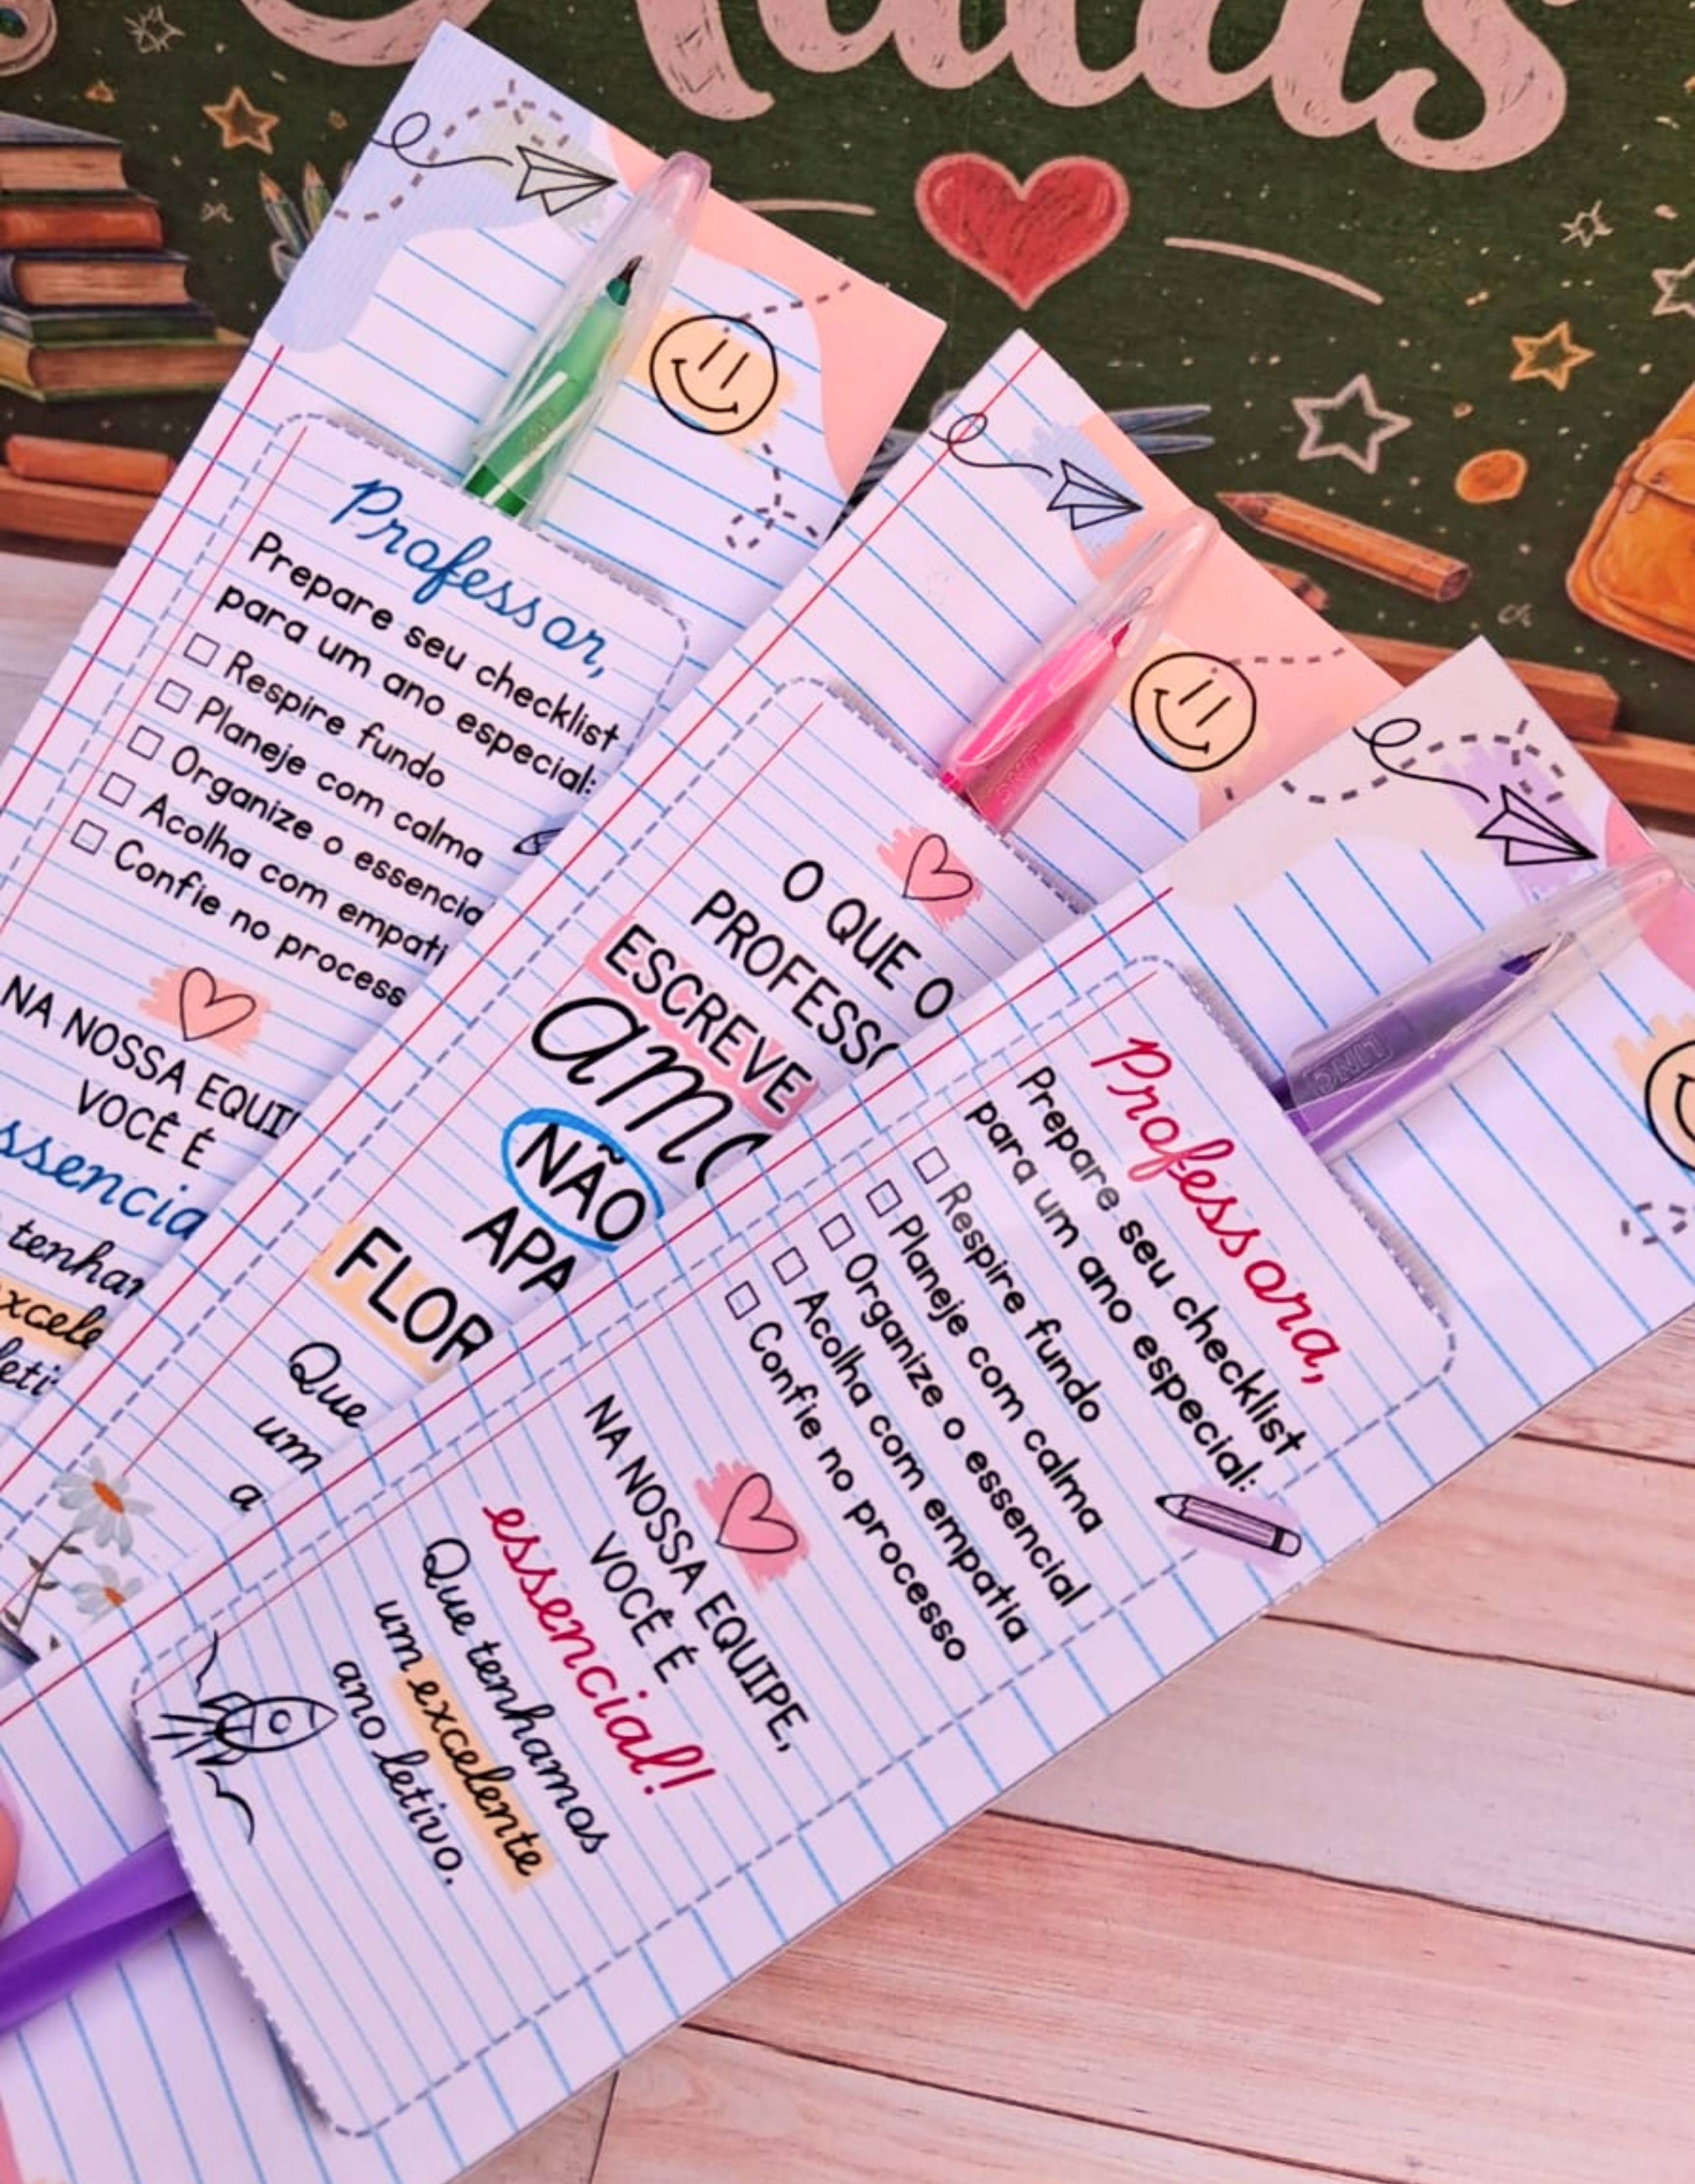 Professor,
Prepare seu checklist
para um ano especial:
Respire fundo
Planeje com calma
Organize o
Acolha com
Confie no
NA NOSSA
VOCÊ É
O QUE O
ESCREVE
NÃO
Que
um
a
Professora,
Prepare seu checklist
para um ano especial:
Respire fundo
Planeje com calma
Organize o essencial
Acolha com empatia
Confie no processo
NA NOSSA EQUIPE,
VOCÊ É
essencial!
Que tenhamos
um excelente
ano letivo.